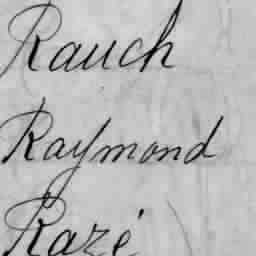 Rauch
Raymond
Razé